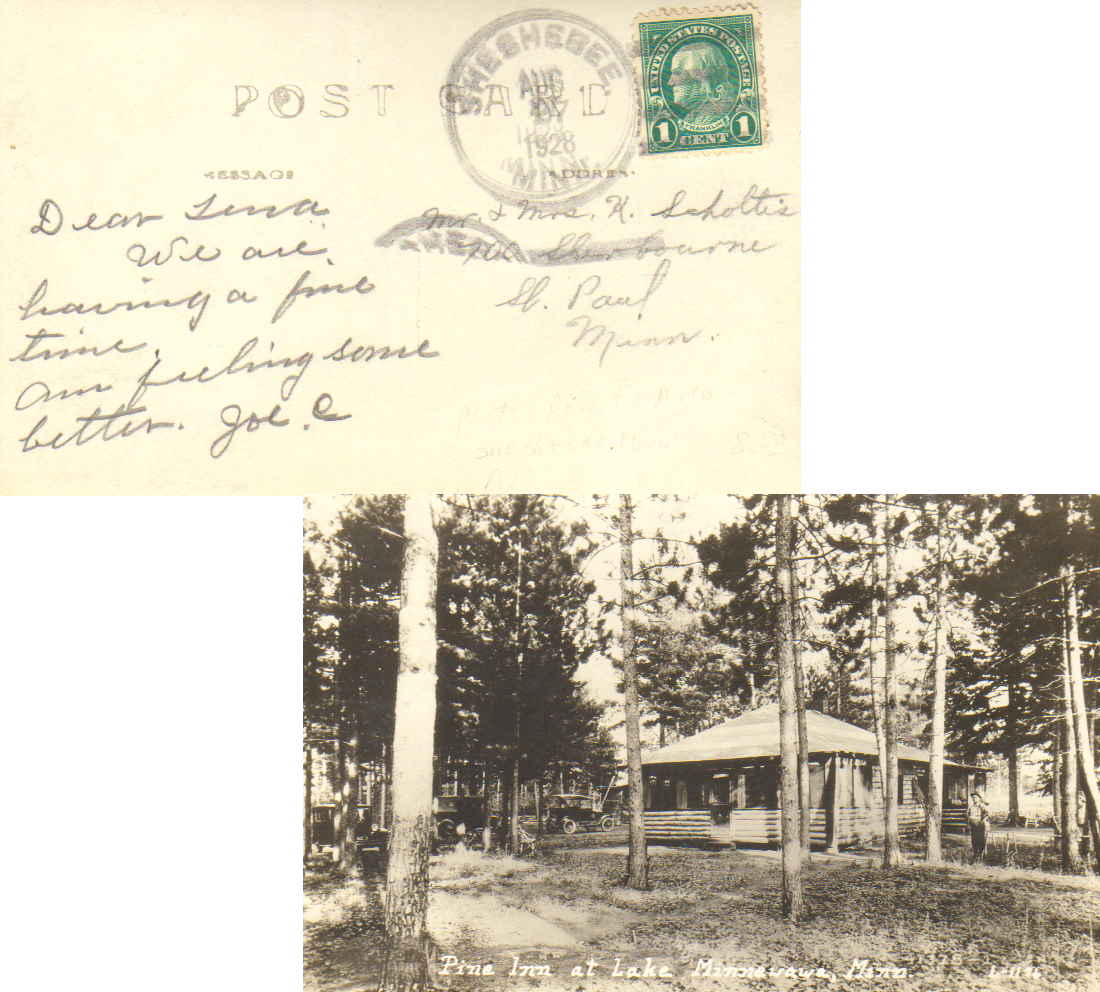 POST CARD
SHESHEBEE
AUG
1928
MINN.
UNITED STATES POSTAGE
FRANKLIN
1 CENT 1
MESSAGE
ADDRESS
Dear Lena
We are
having a fine
time.
am feeling some
better. Joe. C
Mr. & Mrs. K. Scholtis
Sherbourne
St. Paul
Minn.
Pine Inn at Lake Minnewawa, Minn.